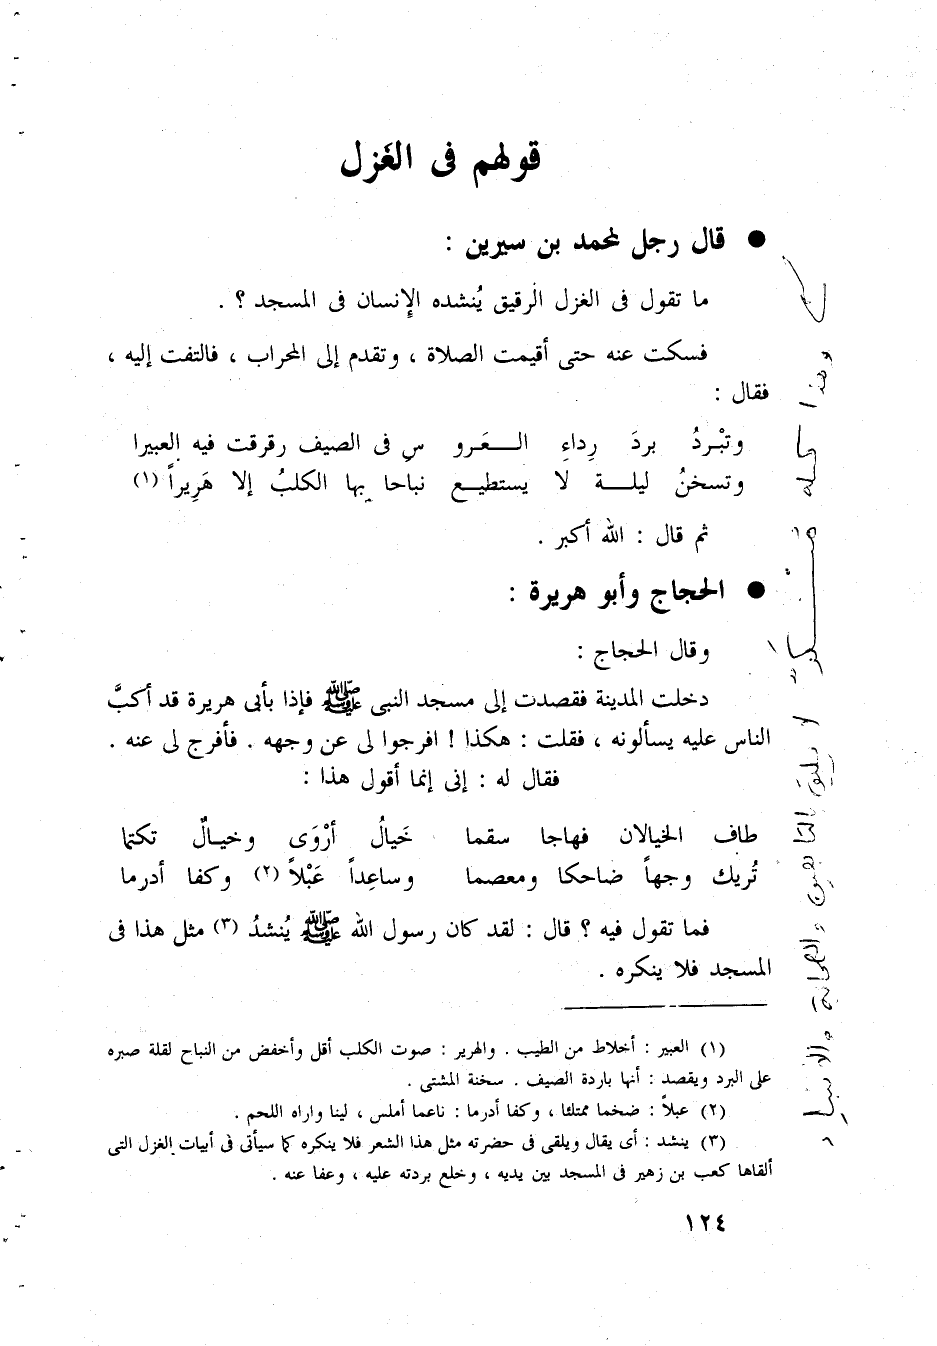 قولهم فى الغَزل
● قال رجل لمحمد بن سيرين :
ما تقول فى الغزل الرقيق يُنشده الإنسان فى المسجد ؟ .
فسكت عنه حتى أقيمت الصلاة ، وتقدم إلى المحراب ، فالتفت إليه ،
فقال :
وتبْردُ بردَ رِداءِ العَرو سِ فى الصيف رقرقت فيه العبيرا
وتسخنُ ليلة لا يستطيع نباحا بها الكلبُ إلا هَرِيراً (١)
ثم قال : الله أكبر .
● الحجاج وأبو هريرة :
وقال الحجاج :
دخلت المدينة فقصدت إلى مسجد النبى ﷺ فإذا بأبى هريرة قد أكبَّ
الناس عليه يسألونه ، فقلت : هكذا ! افرجوا لى عن وجهه . فأفرج لى عنه .
فقال له : إنى إنما أقول هذا :
طاف الخيالان فهاجا سقما خَيالُ أرْوَى وخيالٌ تكتما
تُريك وجهاً ضاحكا ومعصما وساعِداً عَبْلاً (٢) وكفا أدرما
فما تقول فيه ؟ قال : لقد كان رسول الله ﷺ يُنشدُ (٣) مثل هذا فى
المسجد فلا ينكره .
(١) العبير : أخلاط من الطيب . والهرير : صوت الكلب أقل وأخفض من النباح لقلة صبره
على البرد ويقصد : أنها باردة الصيف . سخنة المشتى .
(٢) عبلاً : ضخما ممتلئا ، وكفا أدرما : ناعما أملس ، لينا واراه اللحم .
(٣) ينشد : أى يقال ويلقى فى حضرته مثل هذا الشعر فلا ينكره كما سيأتى فى أبيات الغزل التى
ألقاها كعب بن زهير فى المسجد بين يديه ، وخلع بردته عليه ، وعفا عنه .
١٢٤
وهذا كله
لا يليق والصحابة